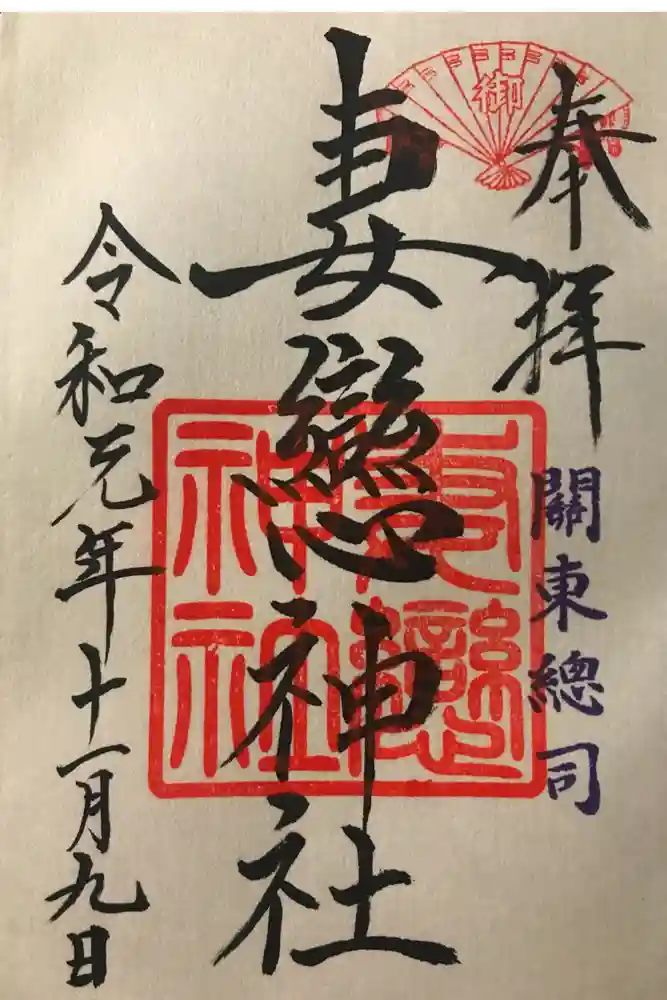 奉拝
關東總司
御
妻戀神社
妻戀
神社
令和元年十一月九日